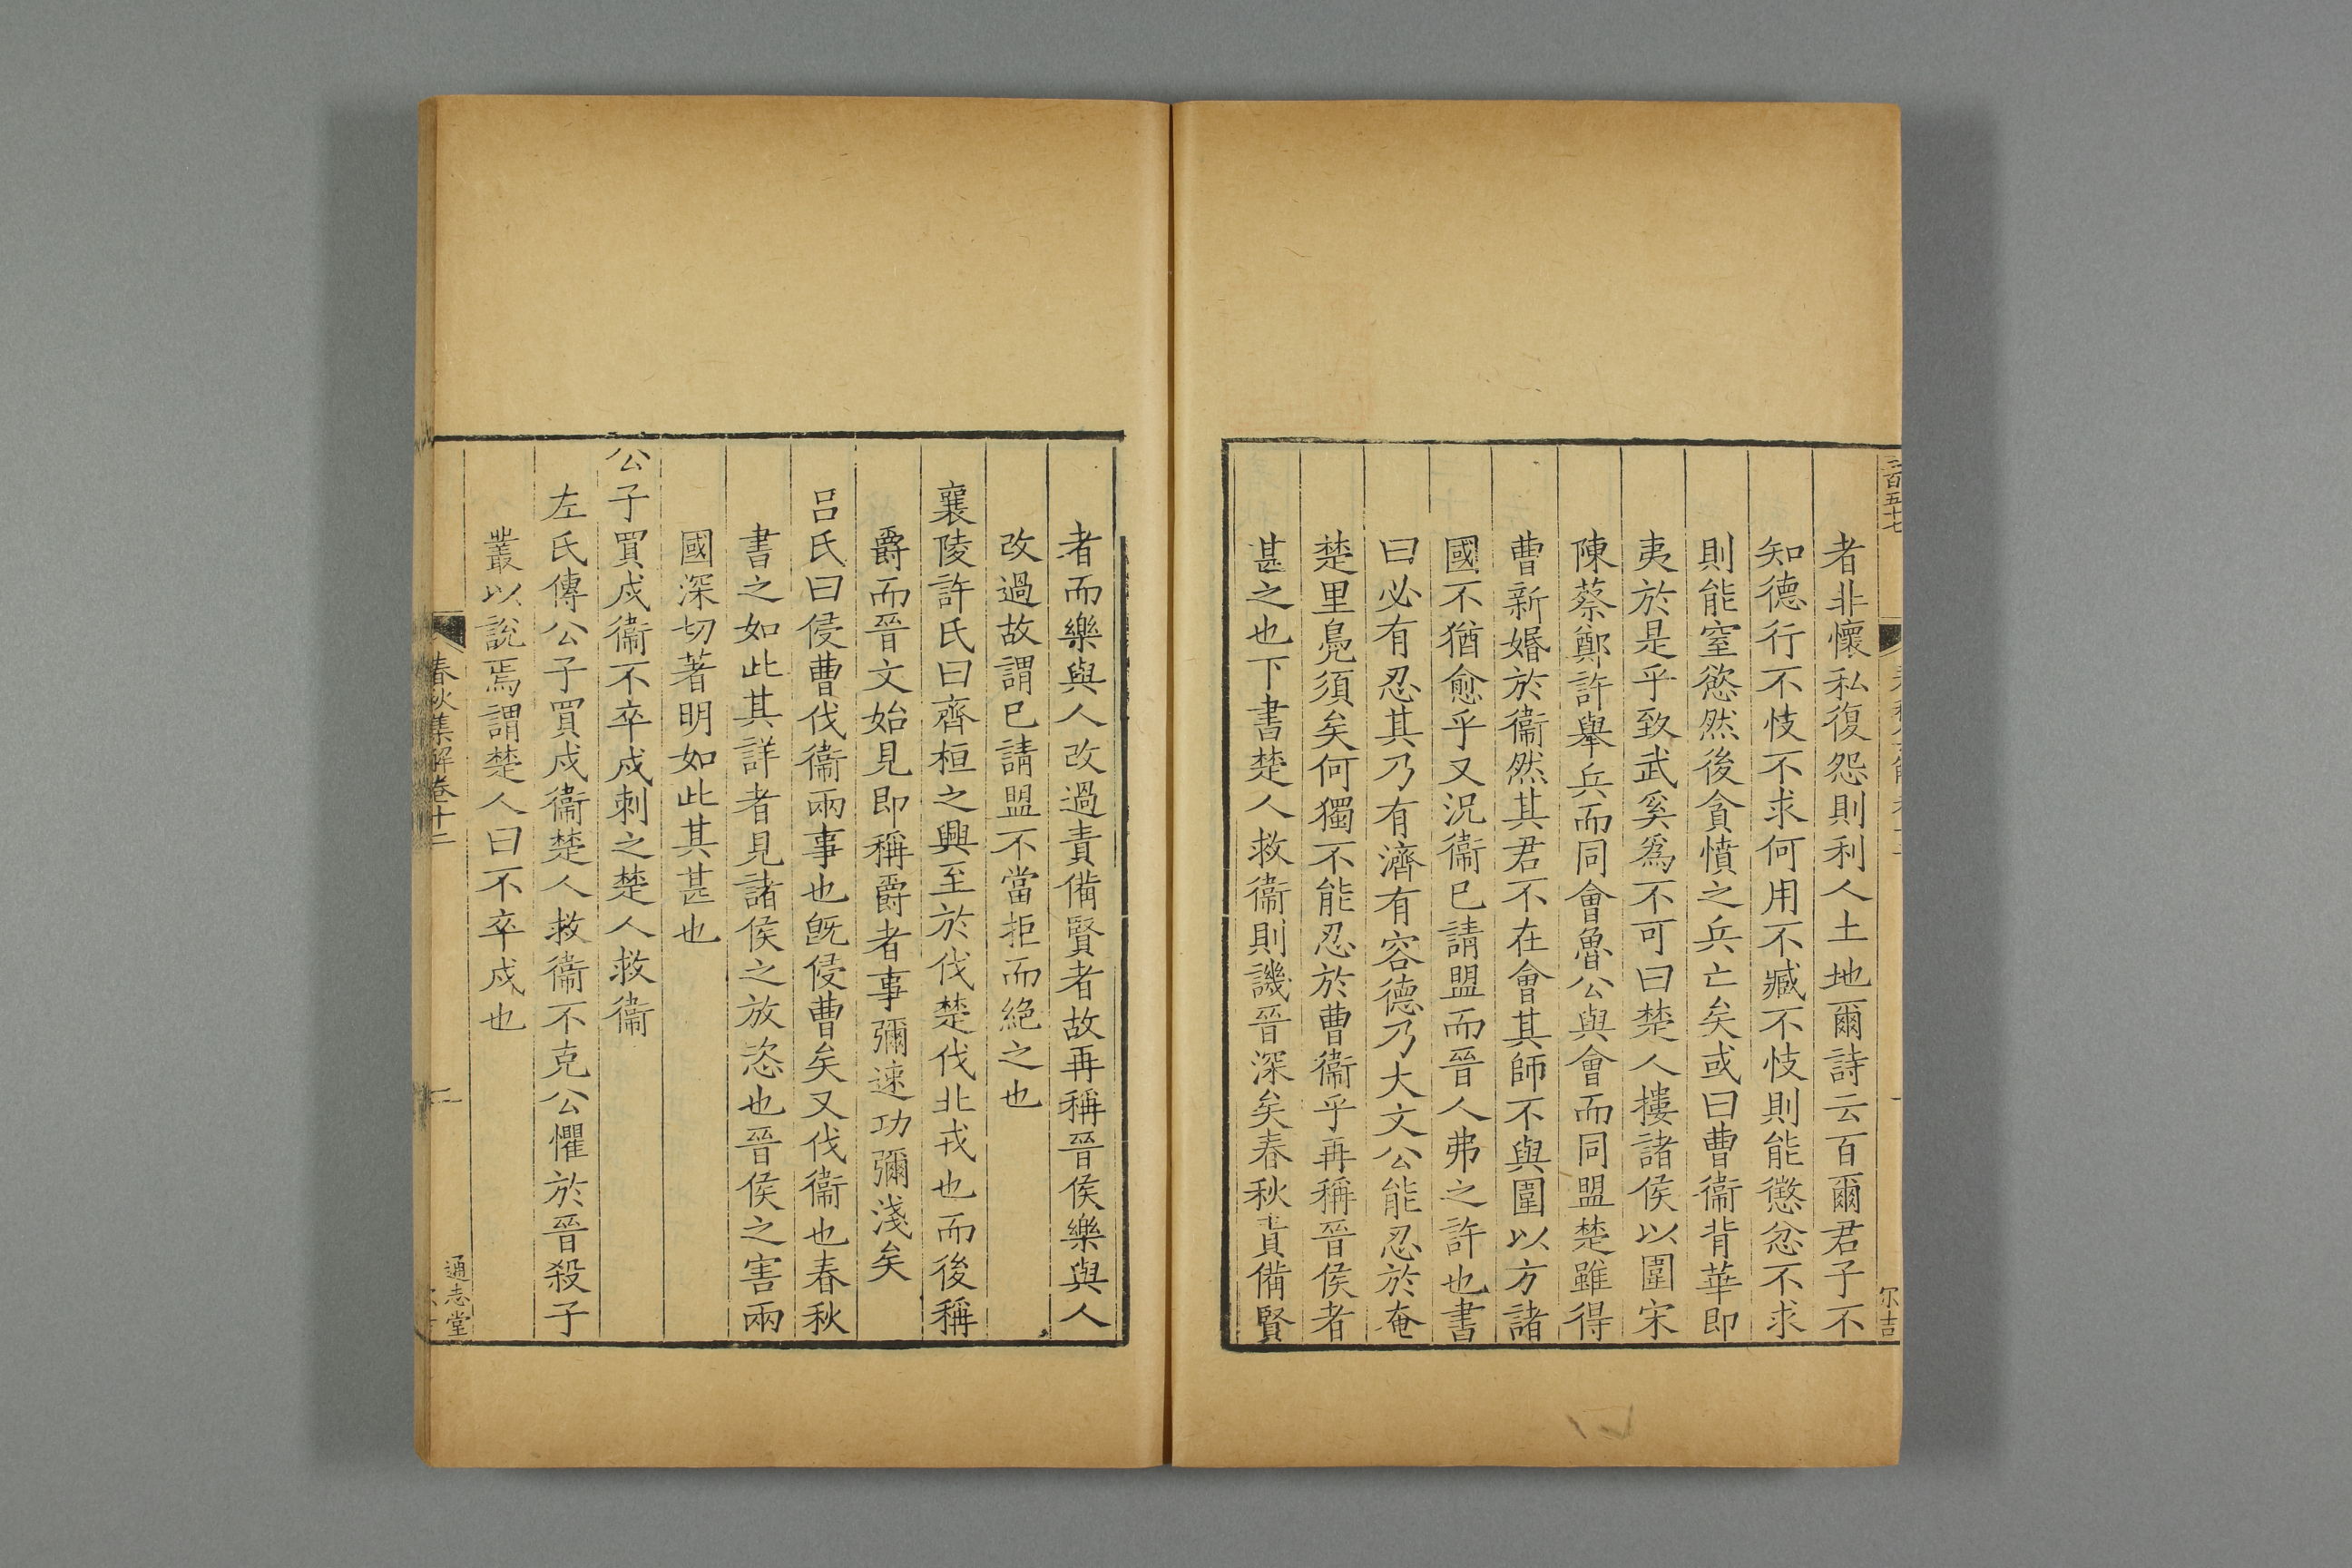 者非懷私復怨則利人土地爾詩云百爾君子不
知德行不忮不求何用不臧不忮則能懲忿不求
則能窒慾然後貪憤之兵亡矣或曰曹衞背華即
夷於是乎致武奚爲不可曰楚人摟諸侯以圍宋
陳蔡鄭許舉兵而同會魯公與會而同盟楚雖得
曹新婚於衞然其君不在會其師不與圍以方諸
國不猶愈乎又況衞已請盟而晉人弗之許也書
曰必有忍其乃有濟有容德乃大文公能忍於奄
楚里鳧須矣何獨不能忍於曹衞乎再稱晉侯者
甚之也下書楚人救衞則譏晉深矣春秋責備賢
尔吉
者而樂與人改過責備賢者故再稱晉侯樂與人
改過故謂已請盟不當拒而絕之也
襄陵許氏曰齊桓之興至於伐楚伐北戎也而後稱
爵而晉文始見即稱爵者事彌速功彌淺矣
呂氏曰侵曹伐衞兩事也旣侵曹矣又伐衞也春秋
書之如此其詳者見諸侯之放恣也晉侯之害兩
國深切著明如此其甚也
公子買戍衞不卒戍刺之楚人救衞
左氏傳公子買戍衞楚人救衞不克公懼於晉殺子
叢以說焉謂楚人曰不卒戍也
春秋集解卷十二
二
通志堂